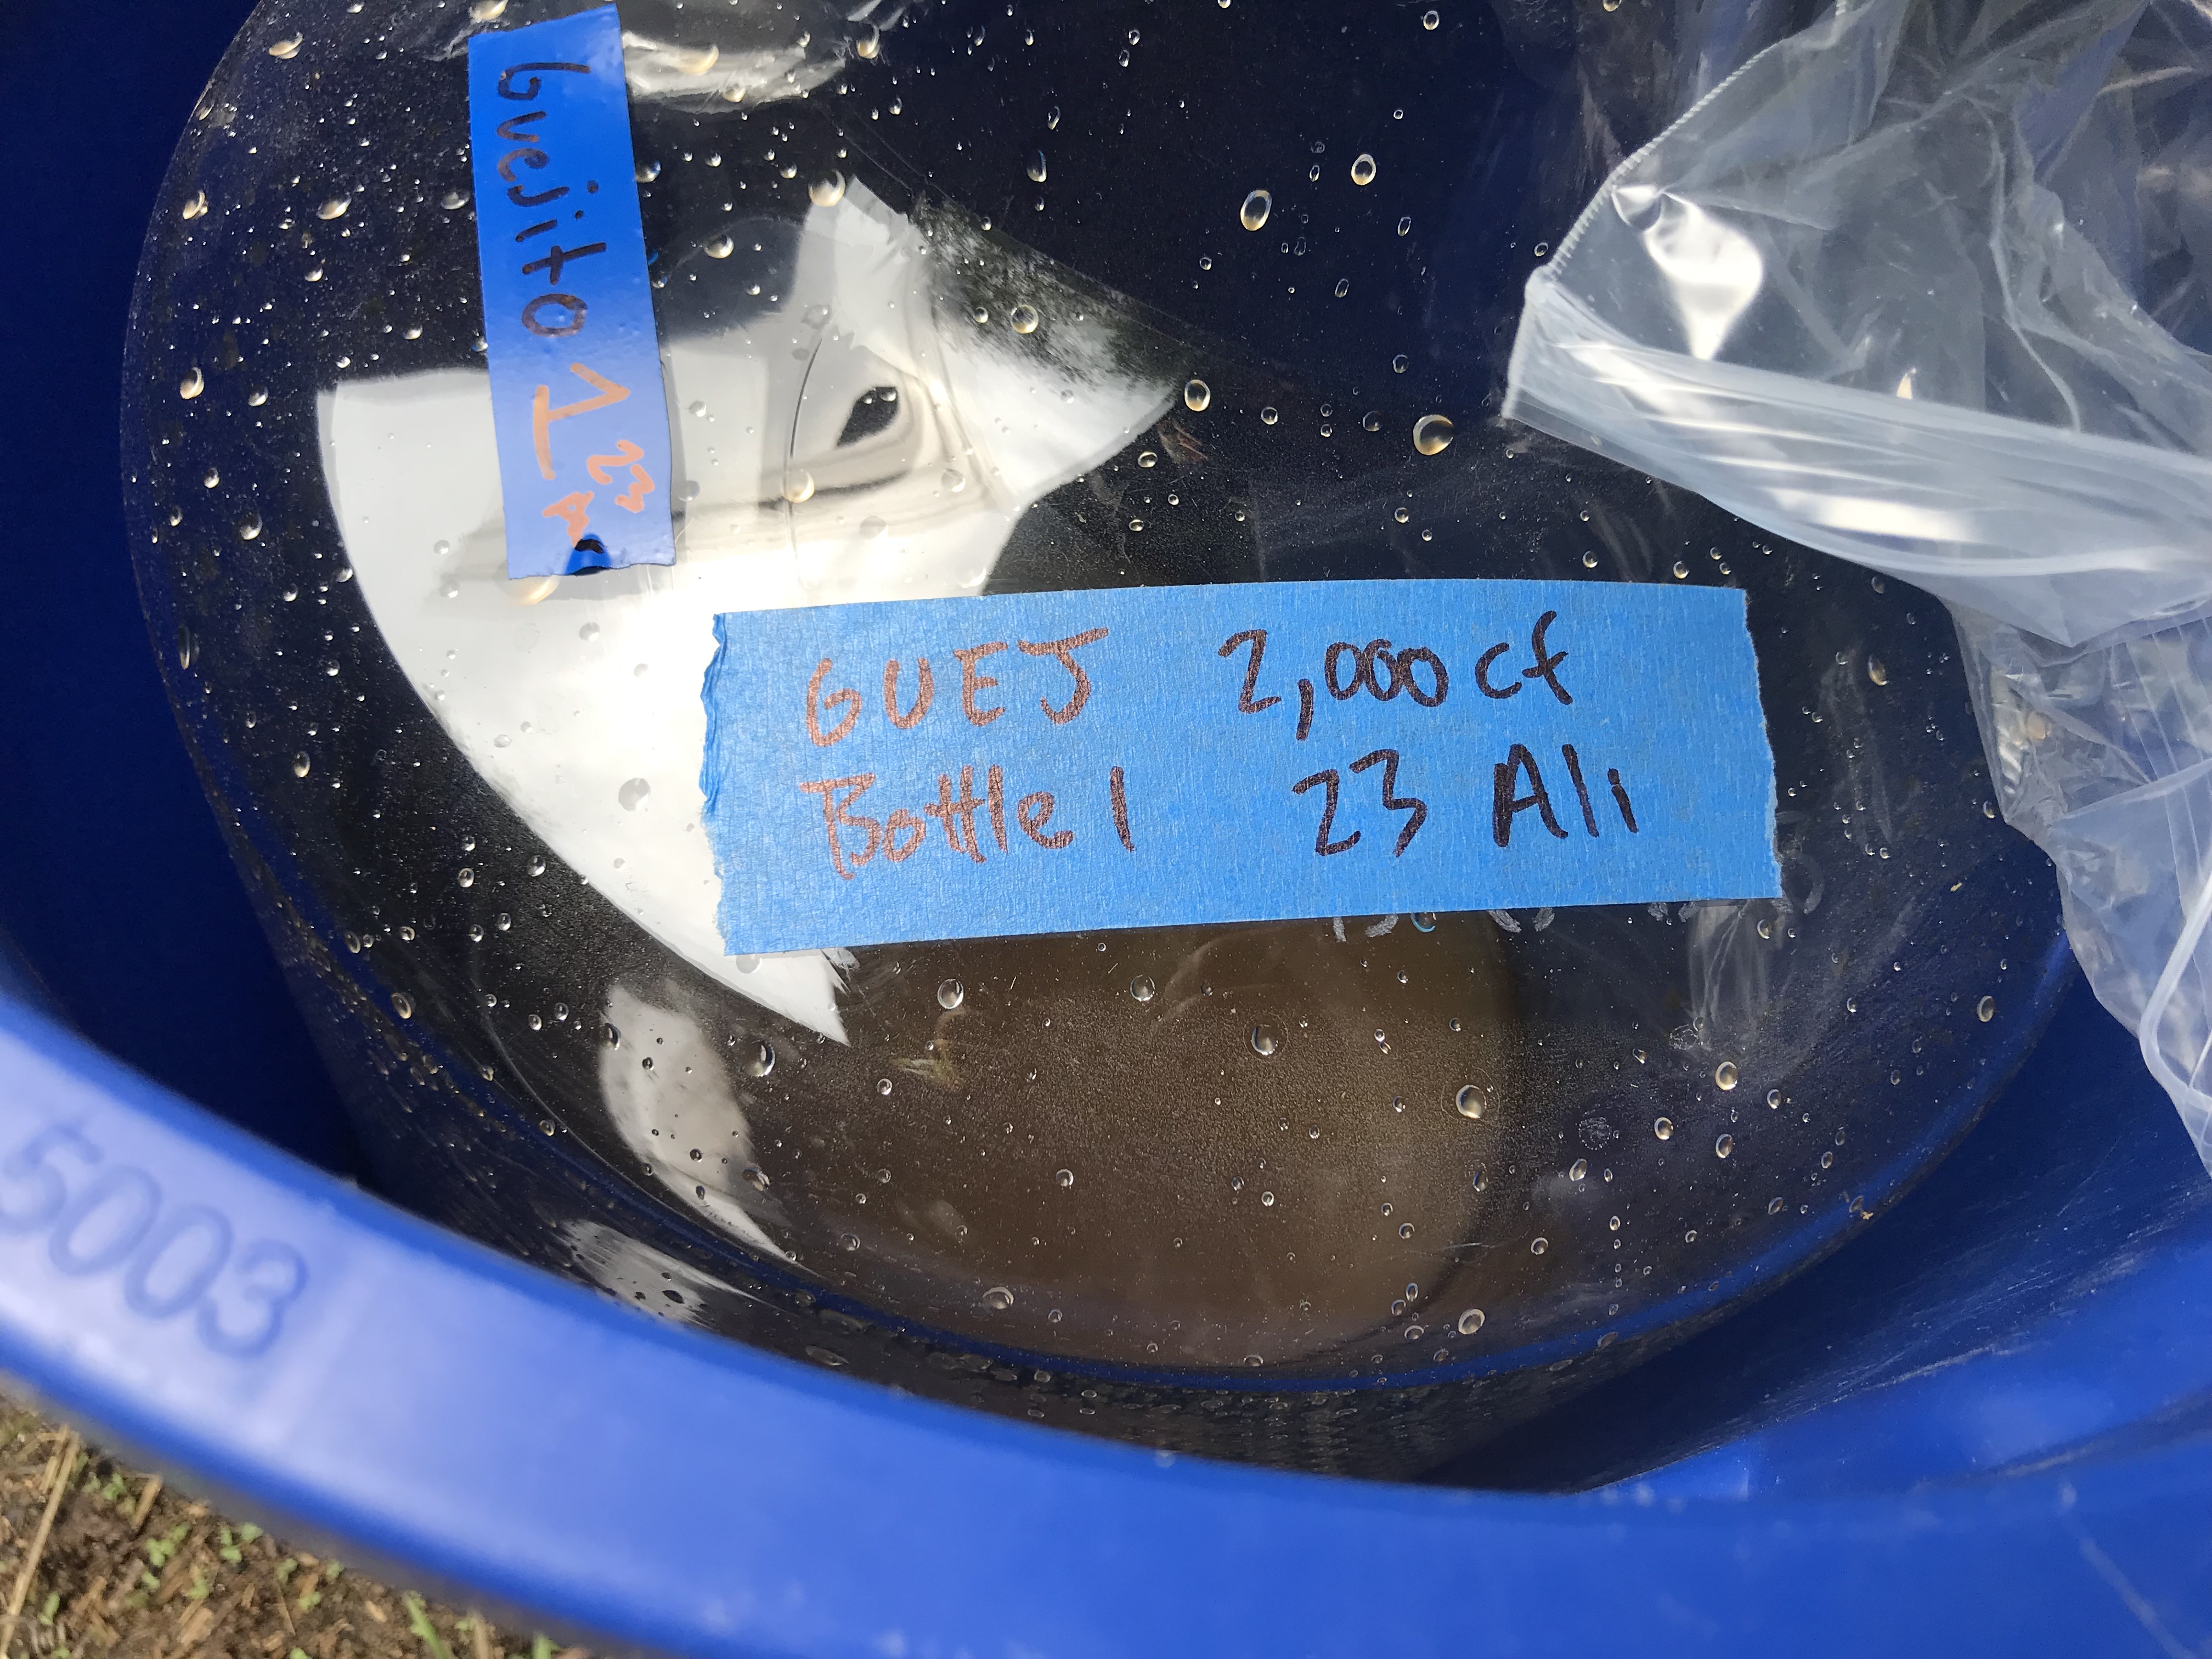 5003
Guejito 1
23
GUEJ 2,000 cf
Bottle 1 23 Alli